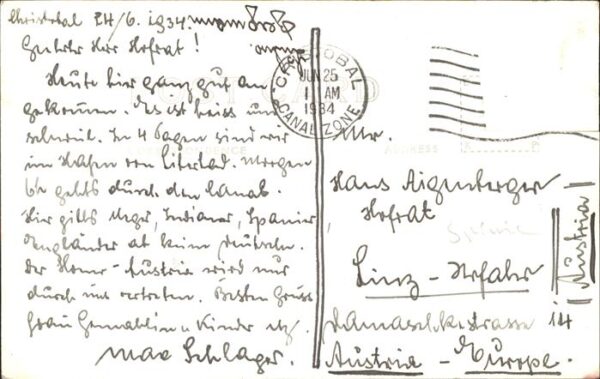 Christobal 24/6. 1934.
Geehrter Herr Hofrat!
Heute hier ganz gut an
gekommen. Es ist heiss und
schwül. In 4 Tagen sind wir
im Hafen von
Morgen
geht's durch den Canal.
Hier gibts Neger, Indianer, Spanier
Engländer ab keine Deutschen.
Der Home-Austria wird nur
durch uns vertreten. Besten Gruss
Frau Gemahlin u Kinder etz.
Max Schlager.
CRISTOBAL
JUN 25
1 AM
1934
CANAL ZONE
POST CARD
CORRESPONDENCE
ADDRESS
Mr.
Hans Aigenberger
Hofrat
Linz - Urfahr
Damaschkestrasse 14
Austria - Europe.
Austria